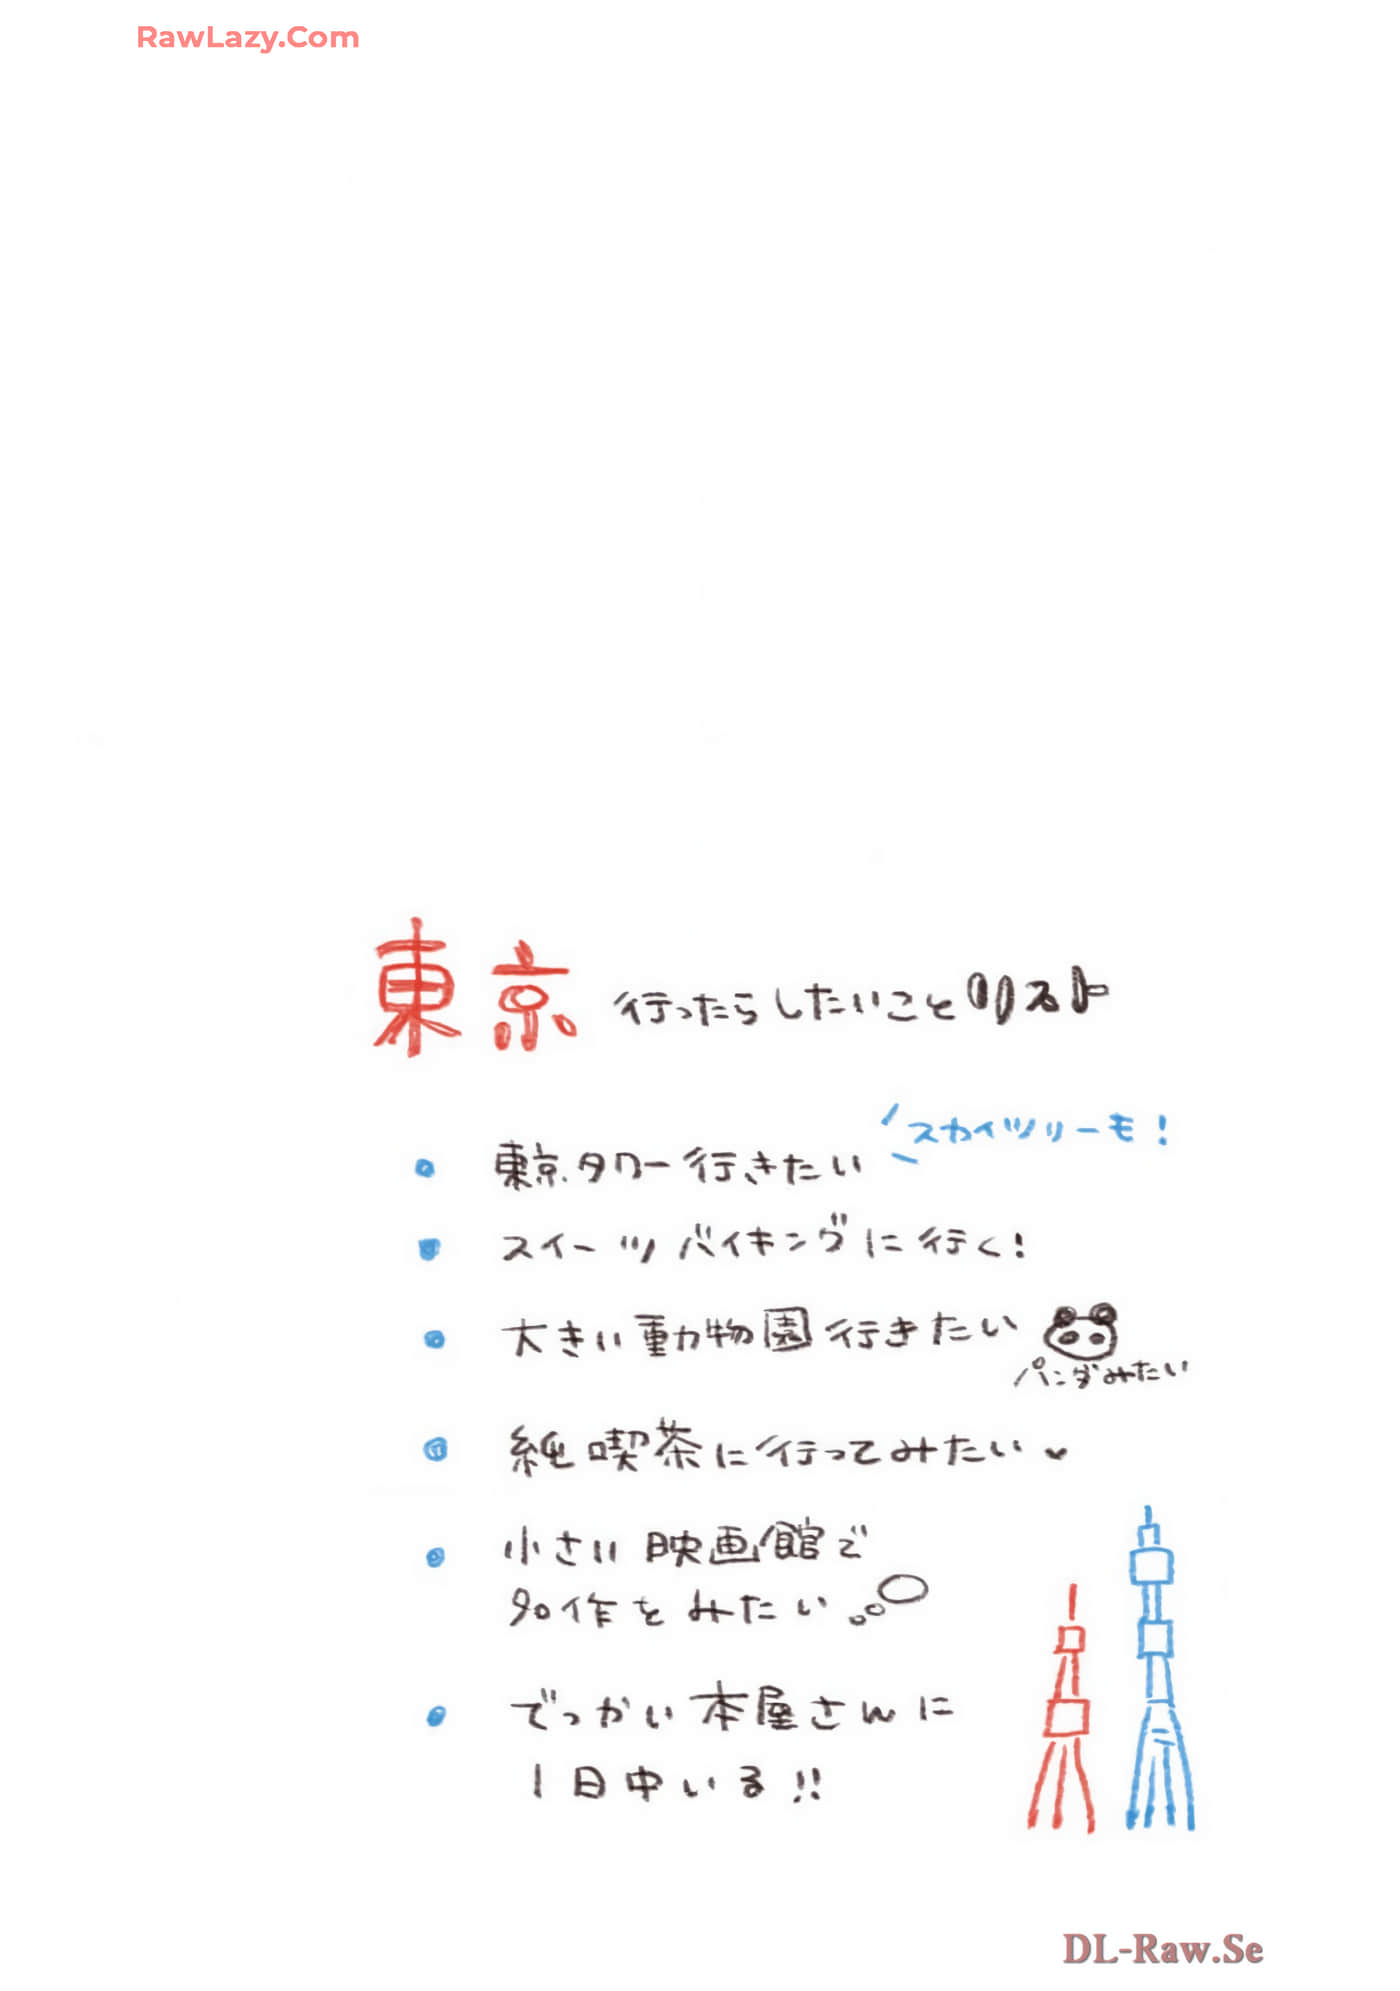 RawLazy.Com
東京 行ったらしたいことリスト
スカイツリーも!
東京タワー行きたい
スイーツバイキングに行く!
大きい動物園行きたい
パンダみたい
純喫茶に行ってみたい
小さい映画館で
名作をみたい
でっかい本屋さんに
1日中いる!!
DL-Raw.Se